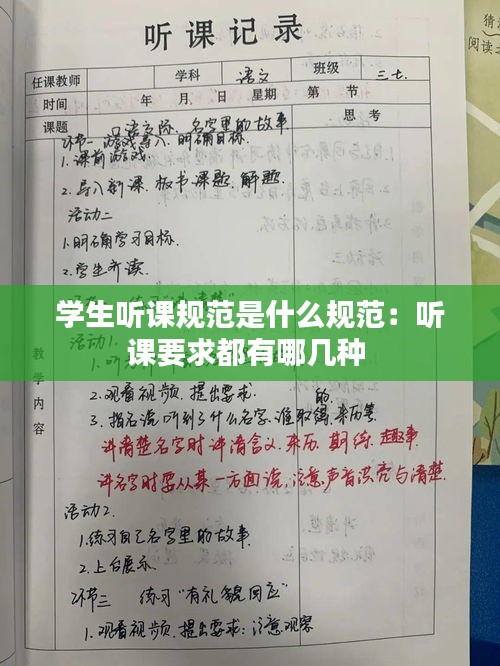 听课记录
任课教师 学科 语文 班级 三七.
时间 年 月 日 星期 第 节
课题 口语交际 名字里的故事 思考
环节一 游戏导入, 明确目标.
1.课前游戏
2.导入新课, 板书课题, 解题.
活动二
1.明确学习目标.
2.学生齐读.
学生听课规范是什么规范：听
课要求都有哪几种
内容
2.观看视频, 提出要求.
3.指名说, 听到了什么名字, 谁取得, 来历等
的.
讲清楚名字时 讲清含义, 来历, 期待, 趣事.
讲名字时要从某一方面说, 注意声音洪亮与清楚.
活动2.
1.练习自己名字里的故事.
2.上台展示.
环节三 练习"有礼貌回应"
1.观看视频, 提出要求: 注意观察
阅读